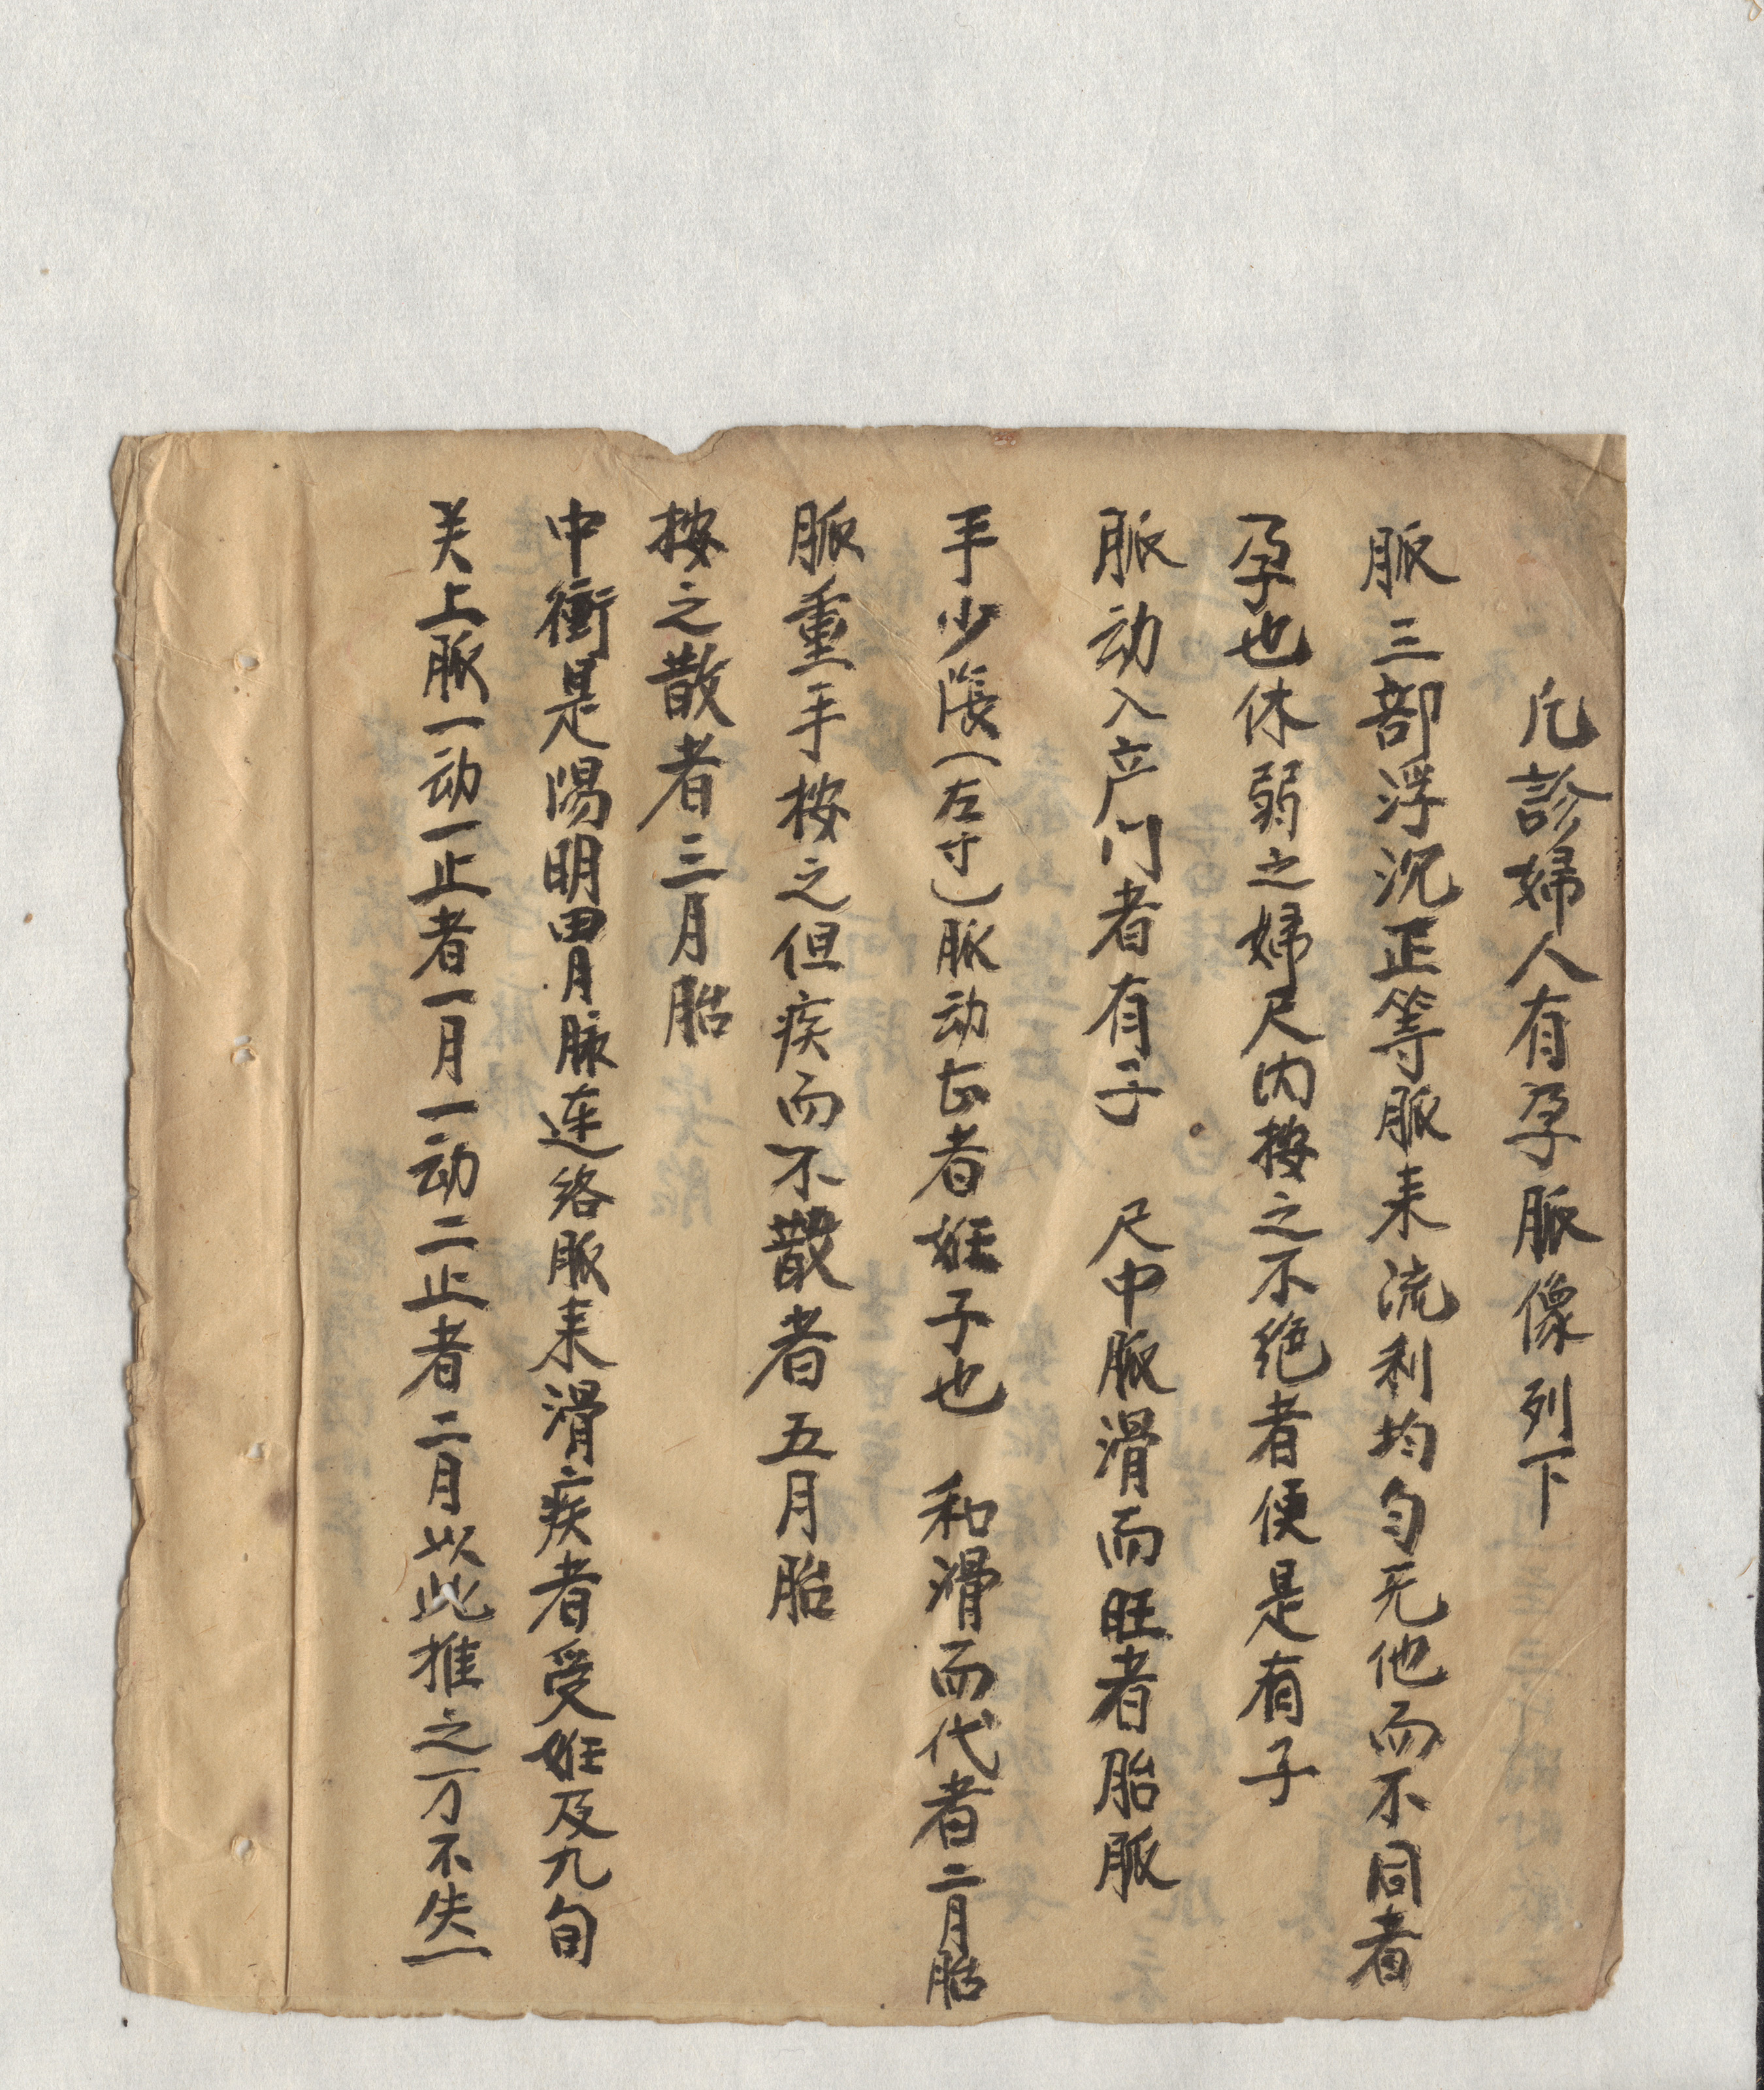 凡診婦人有孕脈像列下
脈三部浮沉正等脈来流利均匀无他而不同者
孕也休弱之婦尺内按之不绝者便是有子
脈动入产门者有子　尺中脈滑而旺者胎脈
手少陰（左寸）脈动甚者姙子也　和滑而代者二月胎
脈重手按之但疾而不散者五月胎
按之散者三月胎
中衝是陽明胃脉连络脈来滑疾者受姙及九旬
关上脈一动一止者一月一动二止者二月以此推之万不失一